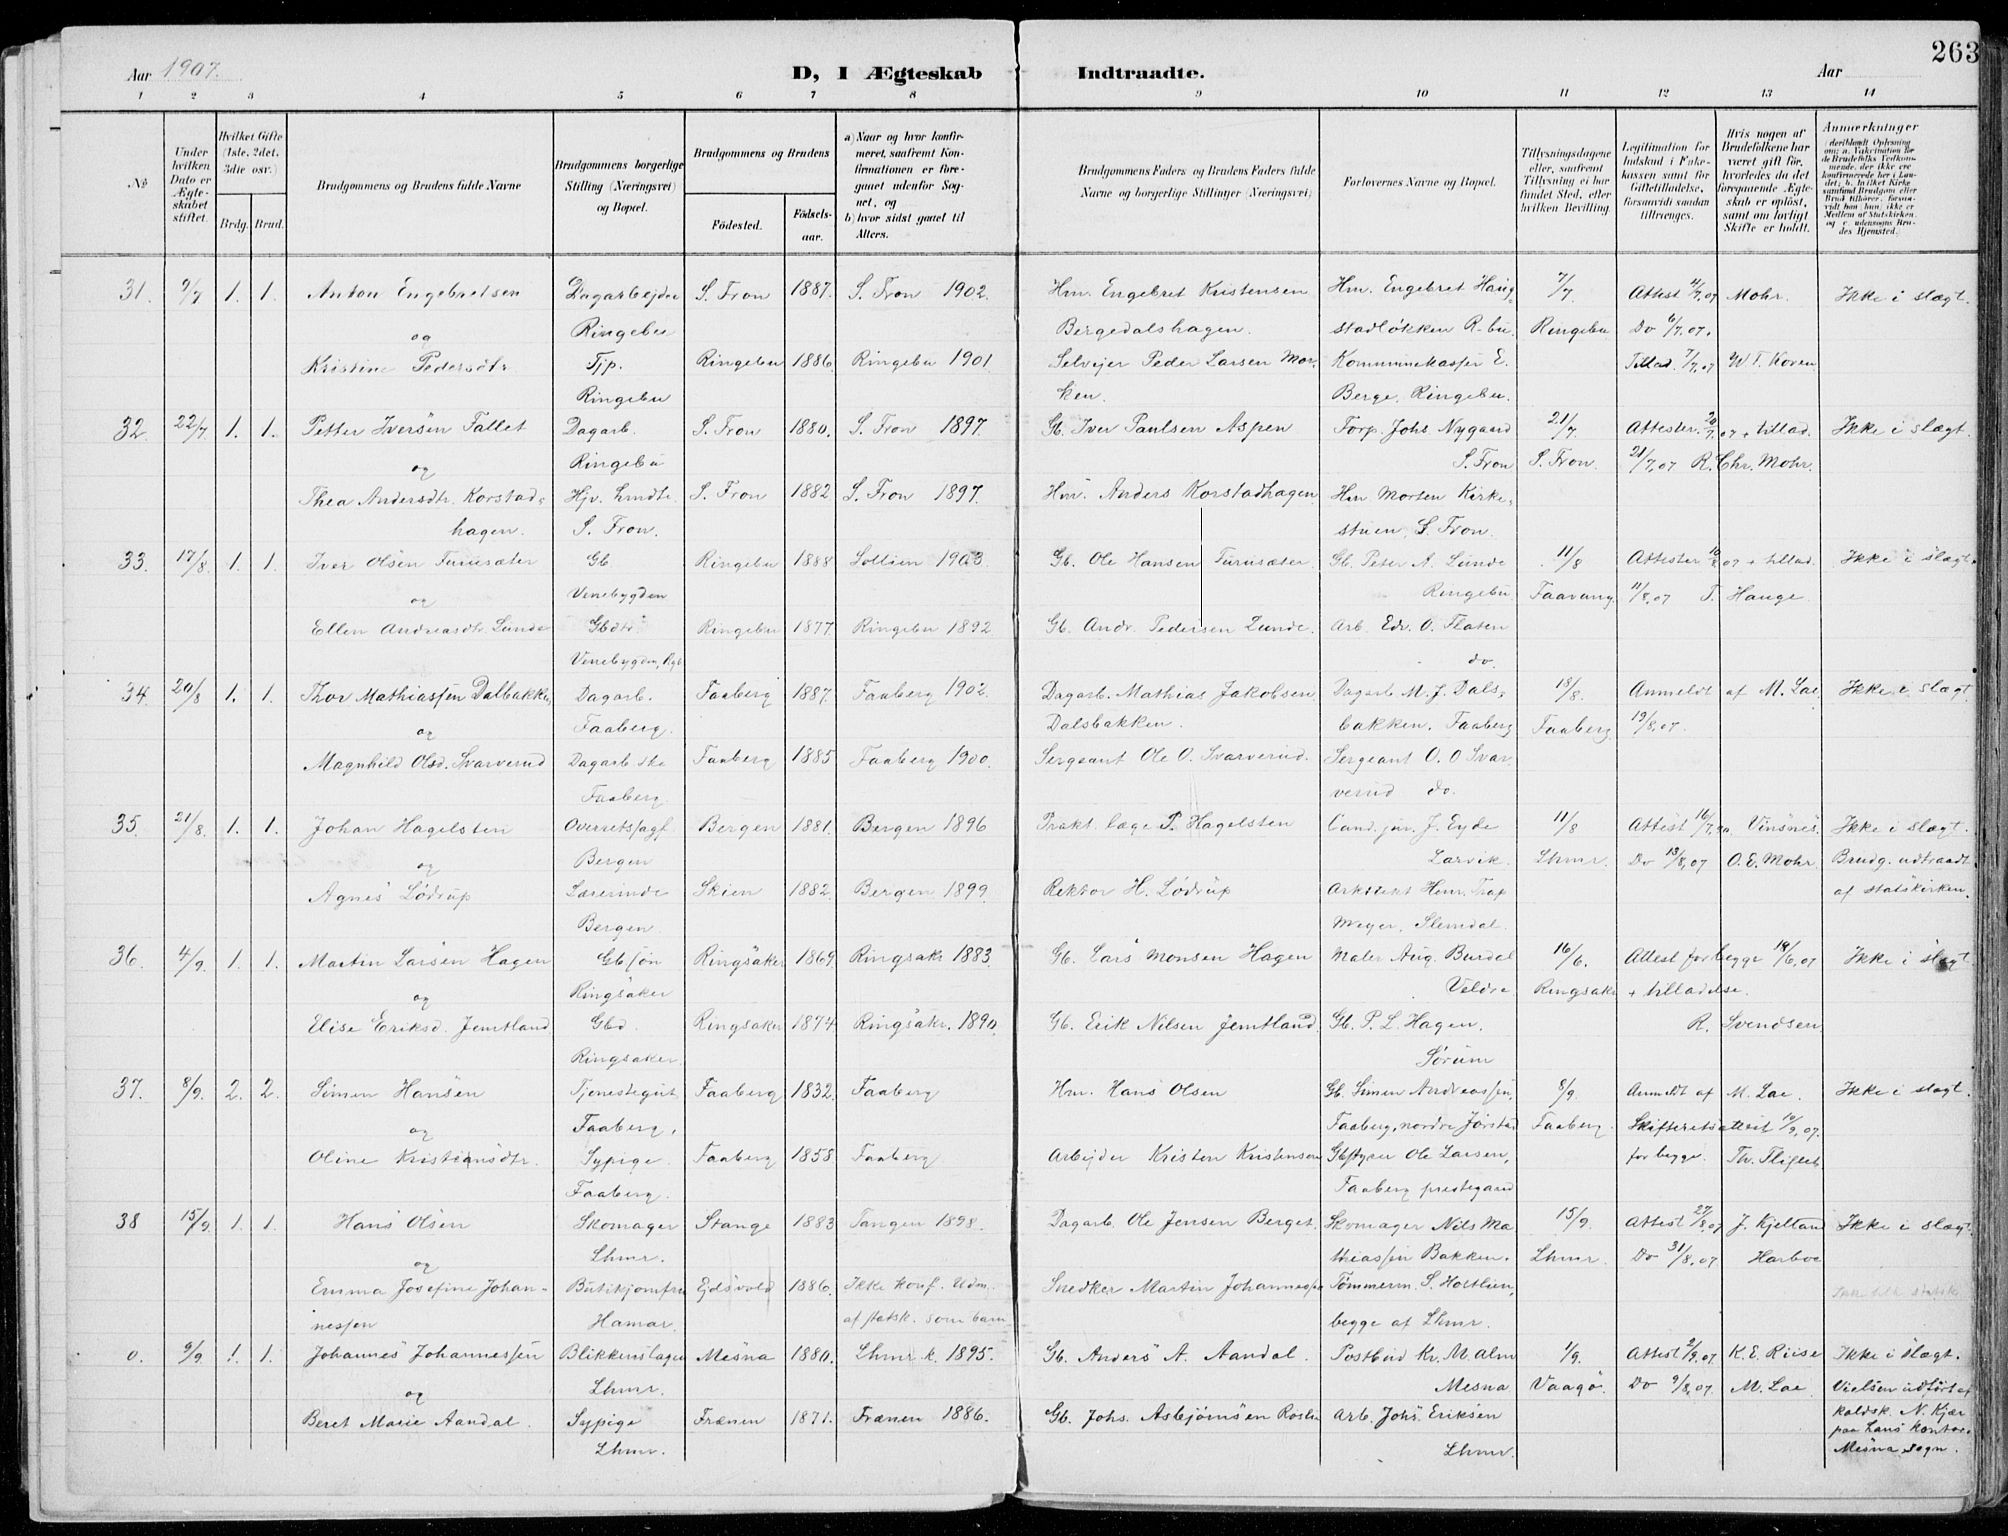 263
Aar 1907.
D, I Ægteskab Indtraadte.
Aar
1 2 3 4 5 6 7 8 9 10 11 12 13 14
No
Under hvilken Dato er Ægteskabet stiftet.
Hvilket Gifte (1ste, 2det, 3die osv.)
Brdg. Brud.
Brudgommens og Brudens fulde Navne
Brudgommens borgerlige Stilling (Næringsvei) og Bopæl.
Brudgommens og Brudens
Fødested.
Fødselsaar.
a) Naar og hvor konfirmeret, saafremt Konfirmationen er foregaaet udenfor Sognet, og
b) hvor sidst gaaet til Alters.
Brudgommens Faders og Brudens Faders fulde Navne og borgerlige Stillinger (Næringsvei)
Forlovernes Navne og Bopæl.
Tillysningsdagene eller, saafremt Tillysning ei har fundet Sted, efter hvilken Bevilling.
Legitimation for Indskud i Enkekassen samt for Giftetilladelse, forsaavidt saadan tiltrænges.
Hvis nogen af Brudefolkene har været gift før, hvorledes da det foregaaende Ægteskab er opløst, samt om lovligt Skifte er holdt.
Anmerkninger
31. 9/7 1. 1. Anton Engebretsen Dagarbejder S. Fron 1887. S. Fron 1902. Hm. Engebret Kristensen Hm. Engebret Haug- 7/7 Attest 4/7.07 Mohr. Ikke i slægt.
og Ringebu Bergedalshagen. stadløkken R-bu. Ringebu Do 6/7.07.
Kristine Pedersdtr Tjp. Ringebu 1886. Ringebu 1901. Selvejer Peder Larsen Mor- Kommunekasser E. Tillad. 7/7.07 W. T. Koren
Ringebu ken. Berge, Ringebu.
32. 22/7. 1. 1. Petter Iversen Fallet Dagarb. S. Fron 1880. S. Fron 1897. Gb. Iver Paulsen Aspen Forp. Johs Nygaard 21/7. Attester 20/7.07 + tillad. Ikke i slægt.
og Ringebu S. Fron S. Fron. 21/7.07 R. Chr. Mohr.
Thea Andersdtr. Korstad- S. Fron 1882 S. Fron 1897. Hm. Anders Korstadhagen Hm Morten Kirke-
hagen. S. Fron. stuen, S. Fron.
33. 17/8. 1. 1. Iver Olsen Furusæter Gb Ringebu 1888 Sollien 1903. Gb. Ole Hansen Furusæter Gb. Peter A. Lunde 11/8 Attester 10/8.07 + tillad. Ikke i slægt.
og Venebygden Ringebu Faavang. 11/8.07 T. Hauge.
Ellen Andreasdtr. Lunde Gbdtr Ringebu 1877. Ringebu 1892 Gb. Andr. Pedersen Lunde. Arb. Edv. O. Flaten
Venebygden, Rgb do.
34. 20/8 1. 1. Thor Mathiassen Dalbakken, Dagarb. Faaberg 1887. Faaberg 1902. Dagarb. Mathias Jakobsen Dagarb M. J. Dals- 18/8. Anmeldt af M. Lae Ikke i slægt
og Faaberg. Dalsbakken. bakken. Faaberg Faaberg 19/8.07.
Magnhild Olsd. Svarverud Dagarb.ske Faaberg 1885 Faaberg 1900. Sergeant Ole O. Svarverud. Sergeant O. O Svar-
Faaberg verud do.
35. 21/8. 1. 1. Johan Hagelsten Overretssagf. Bergen 1881. Bergen 1896 Prakt. læge P. Hagelsten Cand. jur. J. Eyde 11/8 Attest 16/7 Vinsnes. Ikke i slægt.
og Bergen Larvik. Lhmr. Do 13/8.07 O. E. Mohr Brudg. udtraadt
Agnes Lødrup Lærerinde Skien 1882. Bergen 1899. Rektor H. Lødrup Arkitekt Henr. Trap af statskirken.
Bergen. Meyer, Slemdal.
36. 4/9. 1. 1. Martin Larsen Hagen Gbsøn Ringsaker 1869. Ringsakr. 1883. Gb. Lars Monsen Hagen Maler Aug. Burdal 16/6. Attest for begge 19/6.07 Ikke i slægt
og Ringsaker Veldre. Ringsaker + tilladelse.
Elise Eriksd. Jemtland Gbd. Ringsaker 1874 Ringsakr. 1890. Gb. Erik Nilsen Jemtland Gb. P. L. Hagen. R. Svendsen
Ringsaker Sørum
37. 8/9. 2. 2. Simen Hansen Tjenestegut Faaberg 1832. Faaberg Hm. Hans Olsen Gb. Simen Andreassen, 8/9. Anmeldt af M. Lae. Ikke i slægt.
og Faaberg. Faaberg, nordre Jørstad Faaberg. Skifteretsattest 10/9.07.
Oline Kristiansdtr. Sypige. Faaberg 1858 Faaberg Arbejder Kristen Kristensen Gbstyrer Ole Larsen, for begge. Th.
Faaberg. Faaberg prestegaard
38 15/9. 1. 1. Hans Olsen Skomager Stange 1883 Tangen 1898. Dagarb. Ole Jensen Berget. Skomager Nils Ma 15/9. Attest 27/8.07 J. Kjelland Ikke i slægt.
og Lhmr. thiassen Bakken. Lhmr. Do 31/8.07 Harboe
Emma Josefine Johan- Butikjomfru Ejdsvold 1886. Ikke konf. Udm. Snedker Martin Johannessen Tømmerm. S. Hortlien,
nessen Hamar. af statsk. som barn begge af Lhmr.
0. 9/9. 1. 1. Johannes Johannessen Blikkenslager Mesna 1880. Lhmr. k. 1895. Gb. Anders A. Aandal. Postbud Kr. Malm 1/9. Attest 2/9.07 K. E. Riise Ikke i slægt.
og Lhmr. Mesna Vaagø. Do 9/8.07. M. Lae Vielsen udført af
Beret Marie Aandal. Sypige Frænen 1871. Frænen 1886. Gb. Johs. Asbjørnsen Arb. Johs. Eriksen N. Kjær
Lhmr. Lhmr. paa Lans kontor.
Mesna sogn.